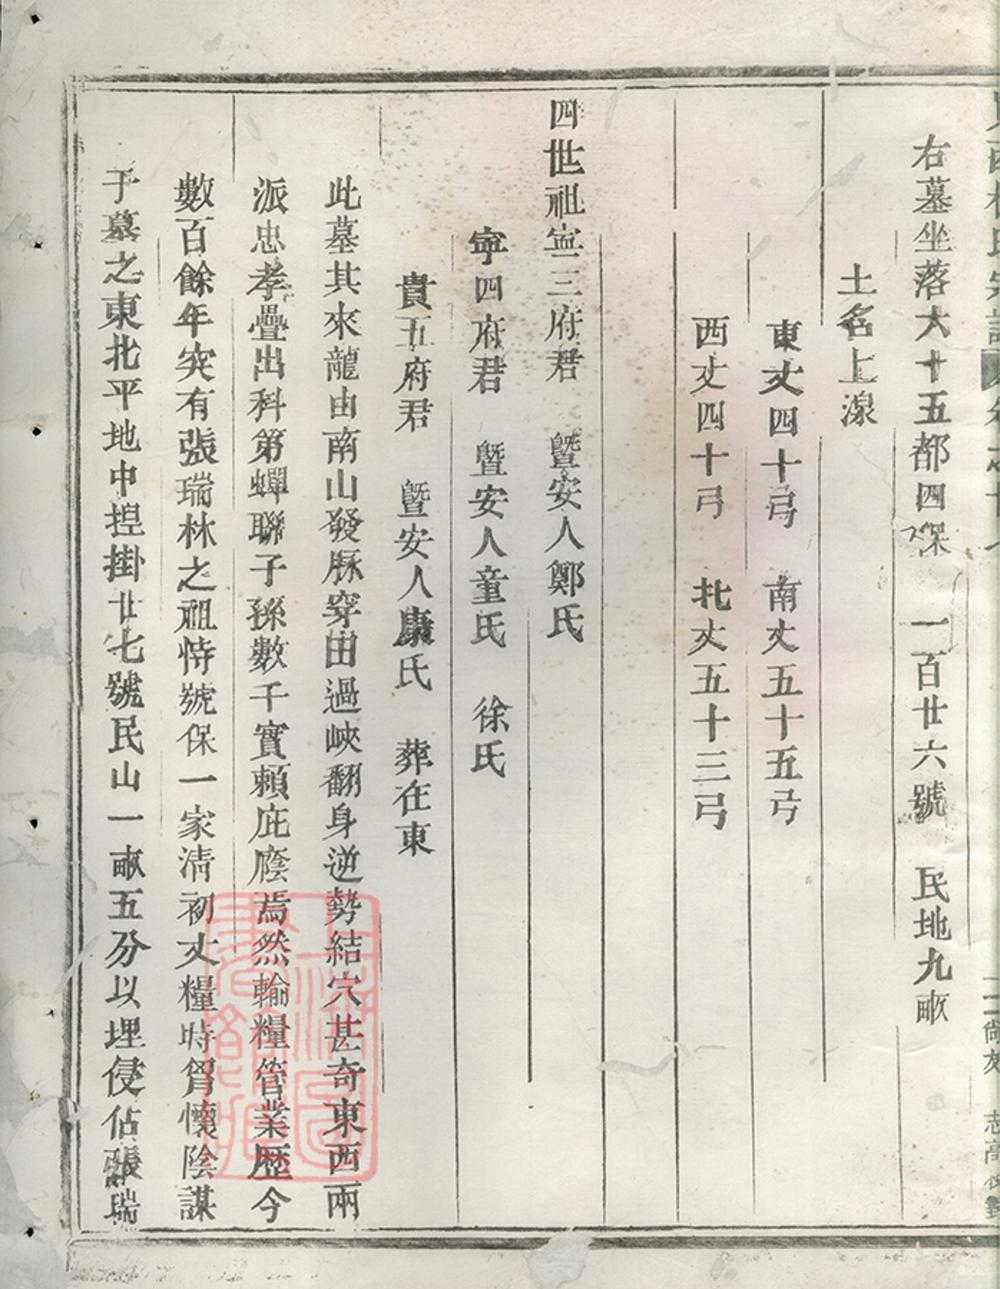 右墓坐落大十五都四保 一百廿六號 民地九畝
土名上湶
東丈四十弓 南丈五十五弓
西丈四十弓 北丈五十三弓
四世祖寍三府君 曁安人鄭氏
寍四府君 曁安人童氏 徐氏
貴五府君 曁安人康氏 葬在東
此墓其來龍由南山發脉穿由過峽翻身逆勢結穴甚奇東西兩
派忠孝疊出科第蟬聯子孫數千實賴庇廕焉然輸糧管業歷今
數百餘年突有張瑞林之祖恃號保一家淸初丈糧時胷懷陰謀
于墓之東北平地中揑掛廿七號民山一畝五分以埋侵佔張瑞